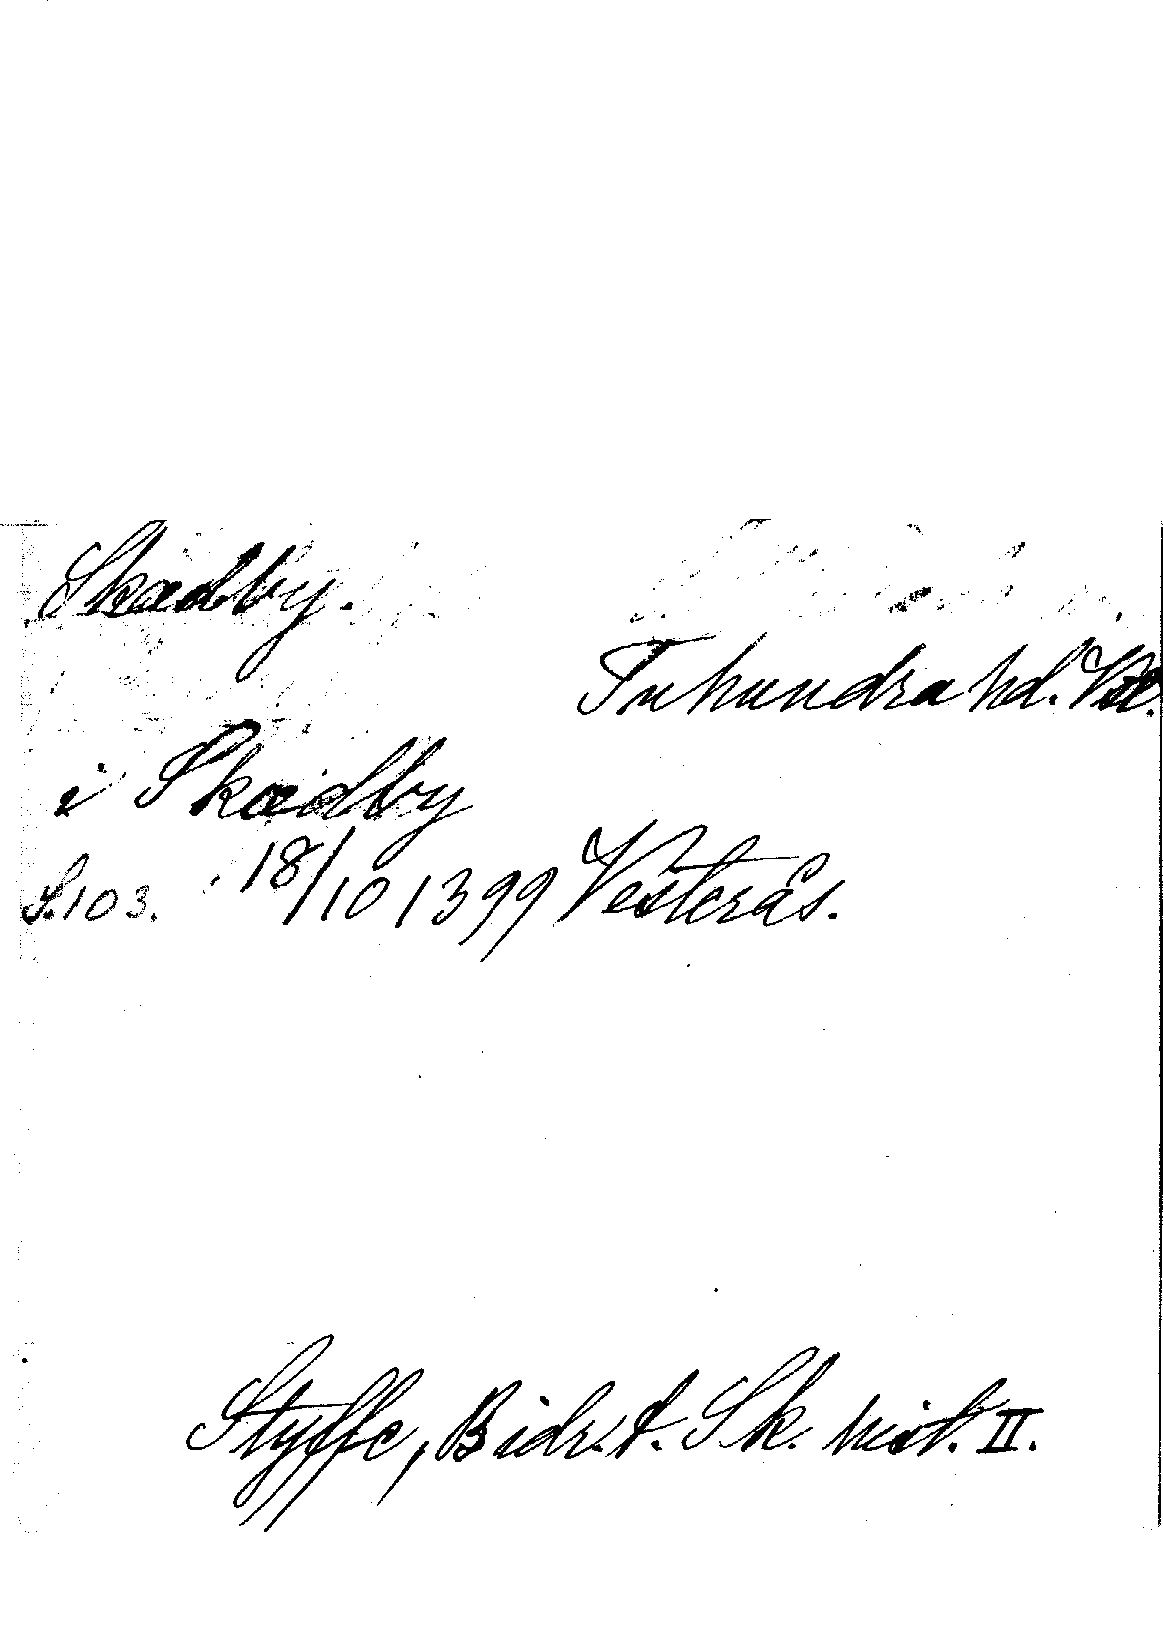 Skædby.
Tuhundra hd. Vstl.
i Skædby
S. 103. 18/10 1399 Vesterås.
Styffe, Bidr. t. Sk. hist. II.